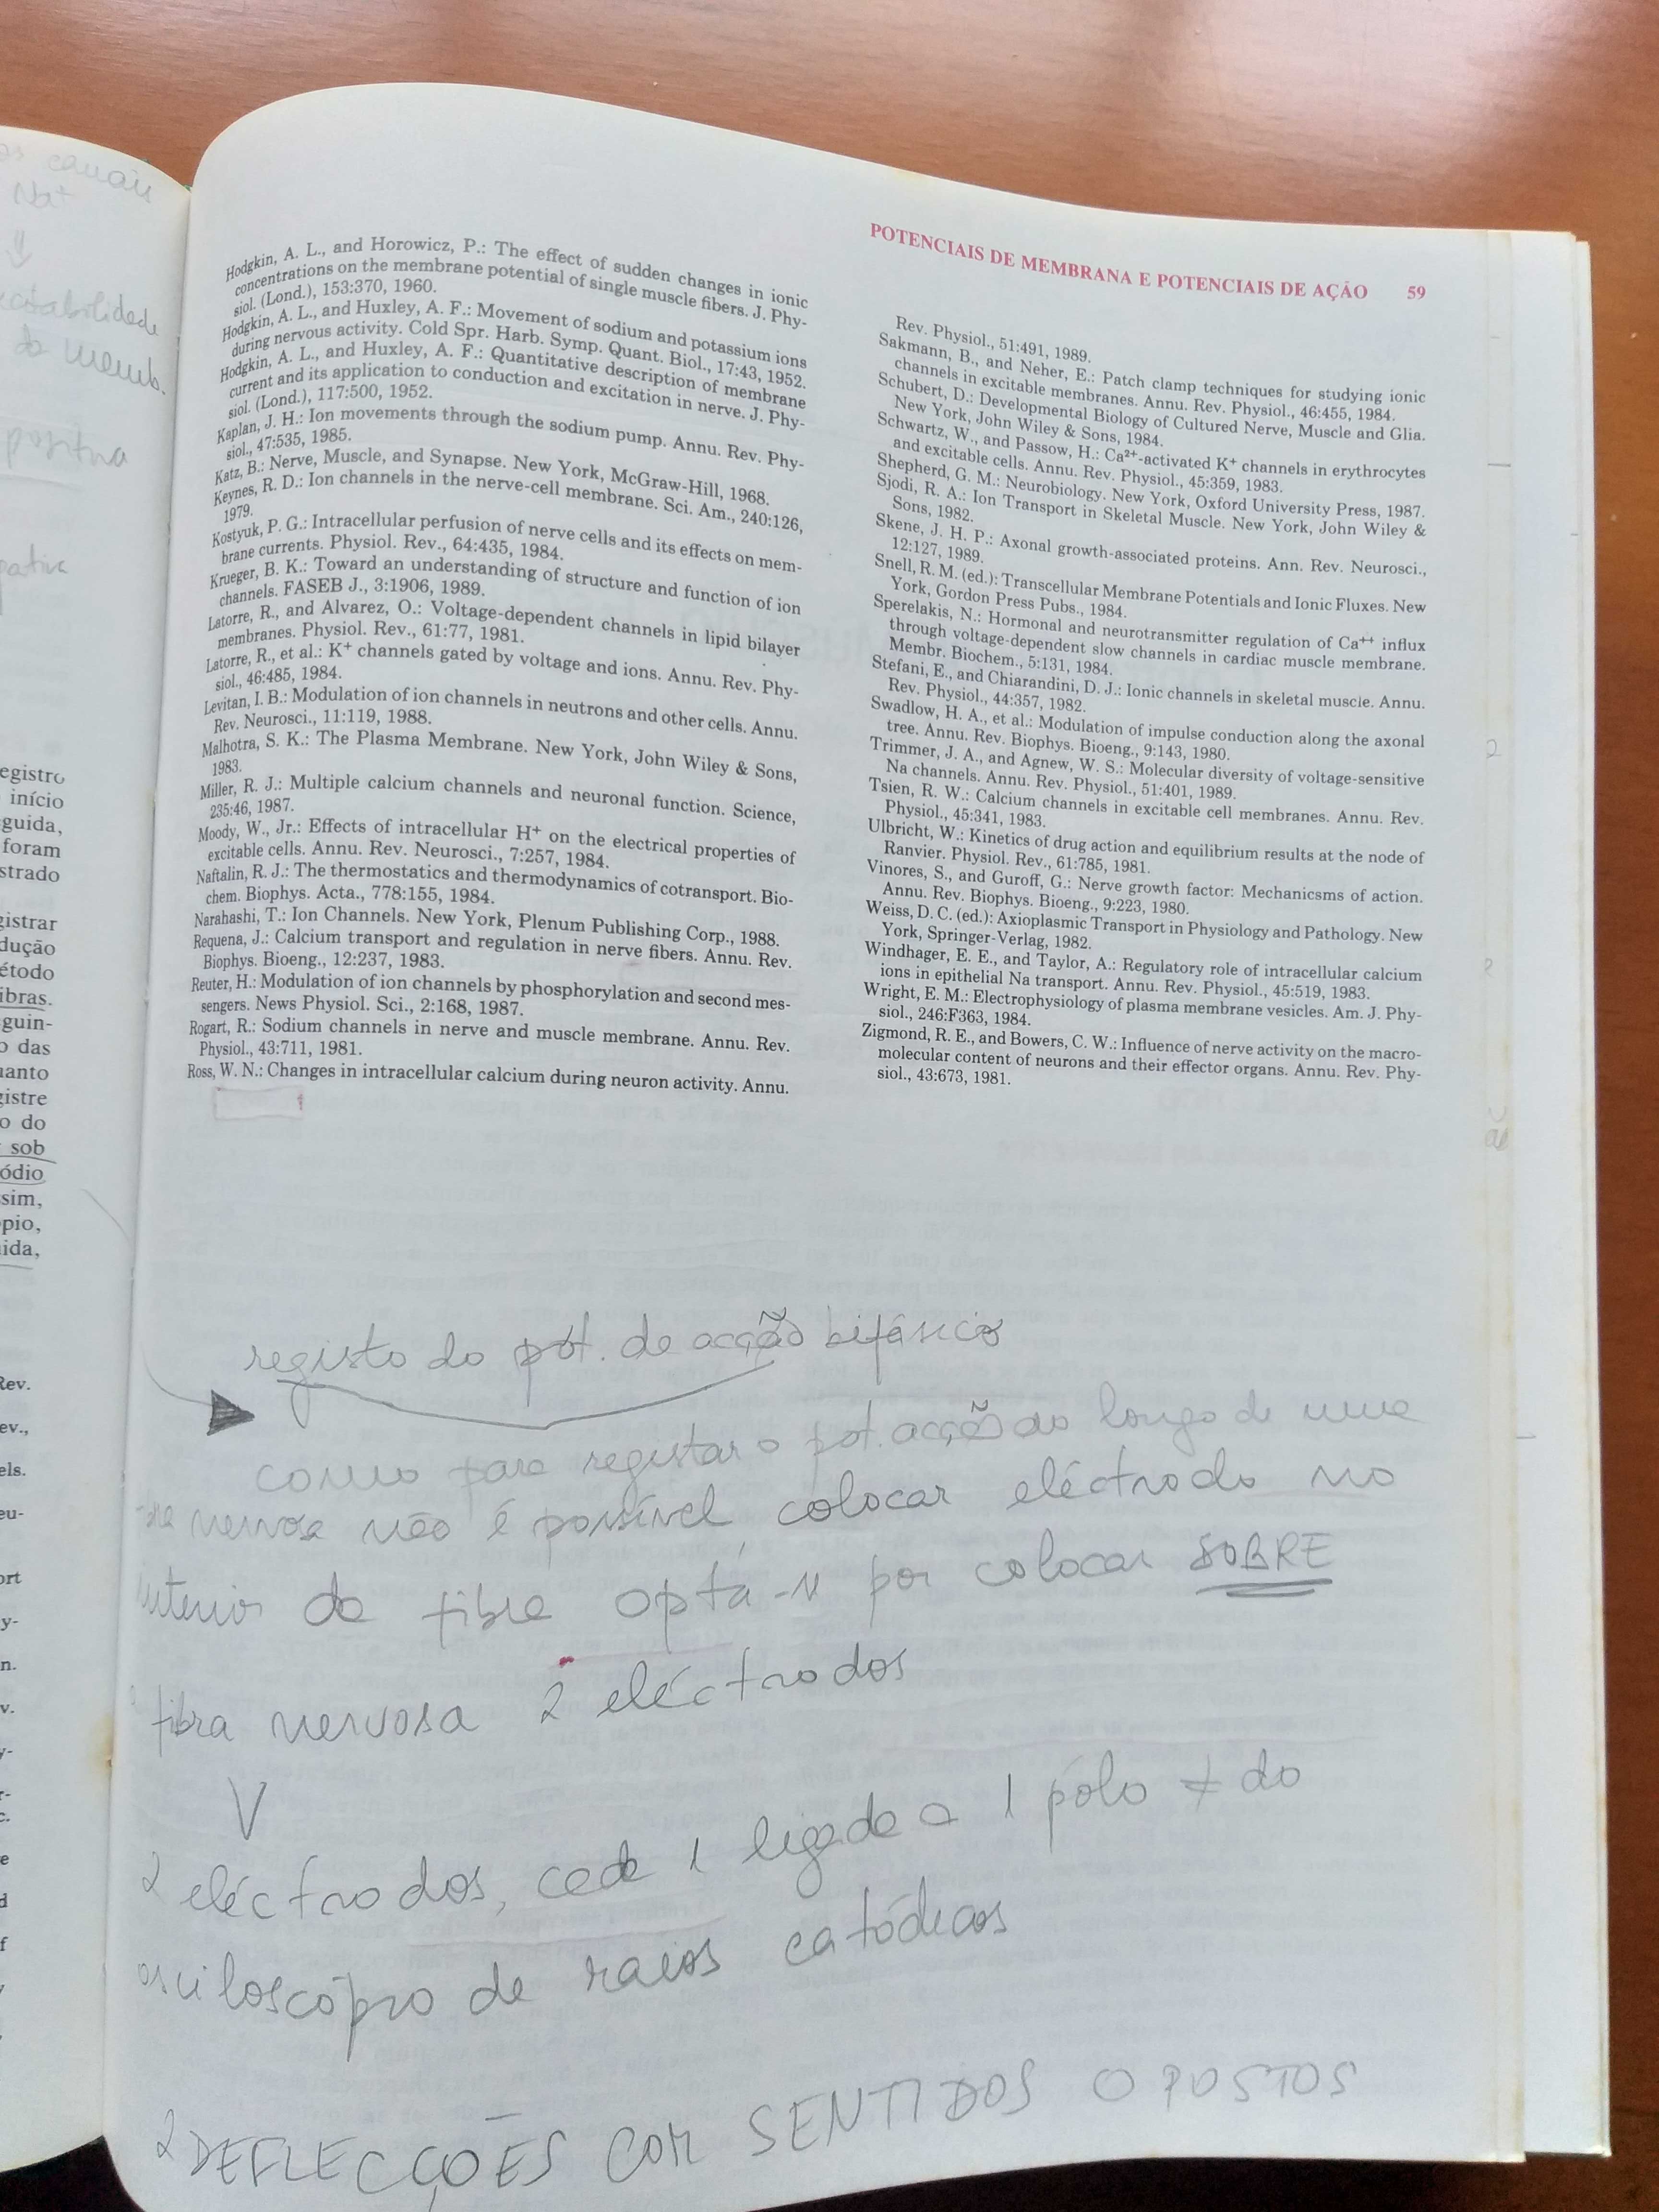 os canais
Na+
⇓
ectabilidade
da memb.
positiva
egistro
início
guida,
foram
strado
gistrar
dução
étodo
ibras.
guin-
o das
uanto
gistre
o do
sob
ódio
sim,
pio,
uida,
Rev.
ev.,
els.
eu-
ort
y-
n.
v.
y-
r-
c.
e
d
f
Hodgkin, A. L., and Horowicz, P.: The effect of sudden changes in ionic
concentrations on the membrane potential of single muscle fibers. J. Phy-
siol. (Lond.), 153:370, 1960.
Hodgkin, A. L., and Huxley, A. F.: Movement of sodium and potassium ions
during nervous activity. Cold Spr. Harb. Symp. Quant. Biol., 17:43, 1952.
Hodgkin, A. L., and Huxley, A. F.: Quantitative description of membrane
current and its application to conduction and excitation in nerve. J. Phy-
siol. (Lond.), 117:500, 1952.
Kaplan, J. H.: Ion movements through the sodium pump. Annu. Rev. Phy-
siol., 47:535, 1985.
Katz, B.: Nerve, Muscle, and Synapse. New York, McGraw-Hill, 1968.
Keynes, R. D.: Ion channels in the nerve-cell membrane. Sci. Am., 240:126,
1979.
Kostyuk, P. G.: Intracellular perfusion of nerve cells and its effects on mem-
brane currents. Physiol. Rev., 64:435, 1984.
Krueger, B. K.: Toward an understanding of structure and function of ion
channels. FASEB J., 3:1906, 1989.
Latorre, R., and Alvarez, O.: Voltage-dependent channels in lipid bilayer
membranes. Physiol. Rev., 61:77, 1981.
Latorre, R., et al.: K+ channels gated by voltage and ions. Annu. Rev. Phy-
siol., 46:485, 1984.
Levitan, I. B.: Modulation of ion channels in neutrons and other cells. Annu.
Rev. Neurosci., 11:119, 1988.
Malhotra, S. K.: The Plasma Membrane. New York, John Wiley & Sons,
1983.
Miller, R. J.: Multiple calcium channels and neuronal function. Science,
235:46, 1987.
Moody, W., Jr.: Effects of intracellular H+ on the electrical properties of
excitable cells. Annu. Rev. Neurosci., 7:257, 1984.
Naftalin, R. J.: The thermostatics and thermodynamics of cotransport. Bio-
chem. Biophys. Acta., 778:155, 1984.
Narahashi, T.: Ion Channels. New York, Plenum Publishing Corp., 1988.
Requena, J.: Calcium transport and regulation in nerve fibers. Annu. Rev.
Biophys. Bioeng., 12:237, 1983.
Reuter, H.: Modulation of ion channels by phosphorylation and second mes-
sengers. News Physiol. Sci., 2:168, 1987.
Rogart, R.: Sodium channels in nerve and muscle membrane. Annu. Rev.
Physiol., 43:711, 1981.
Ross, W. N.: Changes in intracellular calcium during neuron activity. Annu.
POTENCIAIS DE MEMBRANA E POTENCIAIS DE AÇÃO 59
Rev. Physiol., 51:491, 1989.
Sakmann, B., and Neher, E.: Patch clamp techniques for studying ionic
channels in excitable membranes. Annu. Rev. Physiol., 46:455, 1984.
Schubert, D.: Developmental Biology of Cultured Nerve, Muscle and Glia.
New York, John Wiley & Sons, 1984.
Schwartz, W., and Passow, H.: Ca2+-activated K+ channels in erythrocytes
and excitable cells. Annu. Rev. Physiol., 45:359, 1983.
Shepherd, G. M.: Neurobiology. New York, Oxford University Press, 1987.
Sjodi, R. A.: Ion Transport in Skeletal Muscle. New York, John Wiley &
Sons, 1982.
Skene, J. H. P.: Axonal growth-associated proteins. Ann. Rev. Neurosci.,
12:127, 1989.
Snell, R. M. (ed.): Transcellular Membrane Potentials and Ionic Fluxes. New
York, Gordon Press Pubs., 1984.
Sperelakis, N.: Hormonal and neurotransmitter regulation of Ca++ influx
through voltage-dependent slow channels in cardiac muscle membrane.
Membr. Biochem., 5:131, 1984.
Stefani, E., and Chiarandini, D. J.: Ionic channels in skeletal muscle. Annu.
Rev. Physiol., 44:357, 1982.
Swadlow, H. A., et al.: Modulation of impulse conduction along the axonal
tree. Annu. Rev. Biophys. Bioeng., 9:143, 1980.
Trimmer, J. A., and Agnew, W. S.: Molecular diversity of voltage-sensitive
Na channels. Annu. Rev. Physiol., 51:401, 1989.
Tsien, R. W.: Calcium channels in excitable cell membranes. Annu. Rev.
Physiol., 45:341, 1983.
Ulbricht, W.: Kinetics of drug action and equilibrium results at the node of
Ranvier. Physiol. Rev., 61:785, 1981.
Vinores, S., and Guroff, G.: Nerve growth factor: Mechanicsms of action.
Annu. Rev. Biophys. Bioeng., 9:223, 1980.
Weiss, D. C. (ed.): Axioplasmic Transport in Physiology and Pathology. New
York, Springer-Verlag, 1982.
Windhager, E. E., and Taylor, A.: Regulatory role of intracellular calcium
ions in epithelial Na transport. Annu. Rev. Physiol., 45:519, 1983.
Wright, E. M.: Electrophysiology of plasma membrane vesicles. Am. J. Phy-
siol., 246:F363, 1984.
Zigmond, R. E., and Bowers, C. W.: Influence of nerve activity on the macro-
molecular content of neurons and their effector organs. Annu. Rev. Phy-
siol., 43:673, 1981.
registo do pot. de acção bifásico
como para registar o pot. acção ao longo de uma
nervosa não é possível, colocar eléctrodo no
interior da fibra optá-se por colocar SOBRE
fibra nervosa 2 eléctrodos
V
2 eléctrodos, cada 1 ligado a 1 pólo ≠ do
osciloscópio de raios catódicos
2 DEFLECÇÕES COM SENTIDOS OPOSTOS